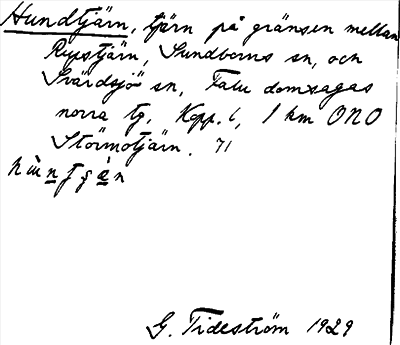 Hundtjärn, tjärn på gränsen mellan
Repstjärn, Sundborns sn, och
Svärdsjö sn, Falu domsagas
norra tg. Kopp. l, 1 km ONO
Störmotjärn. 71
G. Tideström 1929